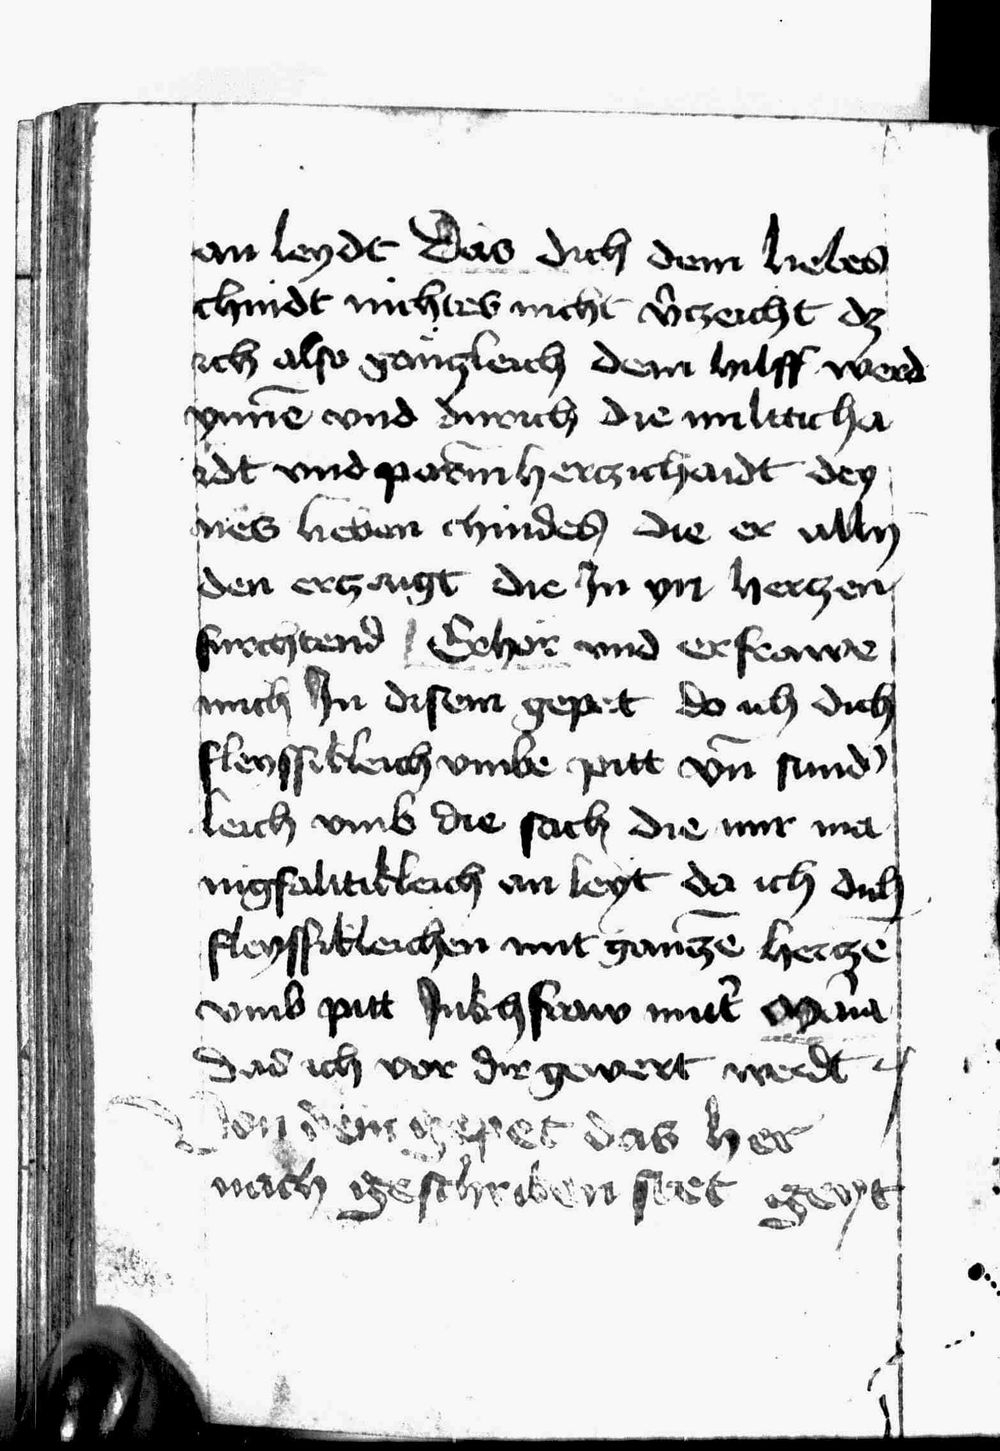 an leydt Das dich dein liebes
chindt nichtes nicht v̂czeicht dz
ich also gänczleich dein hilff werd
ynnē vnd durich die milticha
idt vnd parm̄herczichaidt dey
nes lieben chindes die er alln̄
den erczaigt die In yn herczen
furchtend Erhör vnd erfrawe
mich In disem gepet do ich dich
fleyssikleich vmbe pitt vn̄ sund
leich vmb die sach die mir ma
nigfaltikleich an leyt da ich dich
fleyssikleichen mit gancze hercze
vmb pitt Jukchfraw mut̂ Maria
Das ich vor dir gewert werdt
Von dem gepet das her
nach geschriben stet geyt